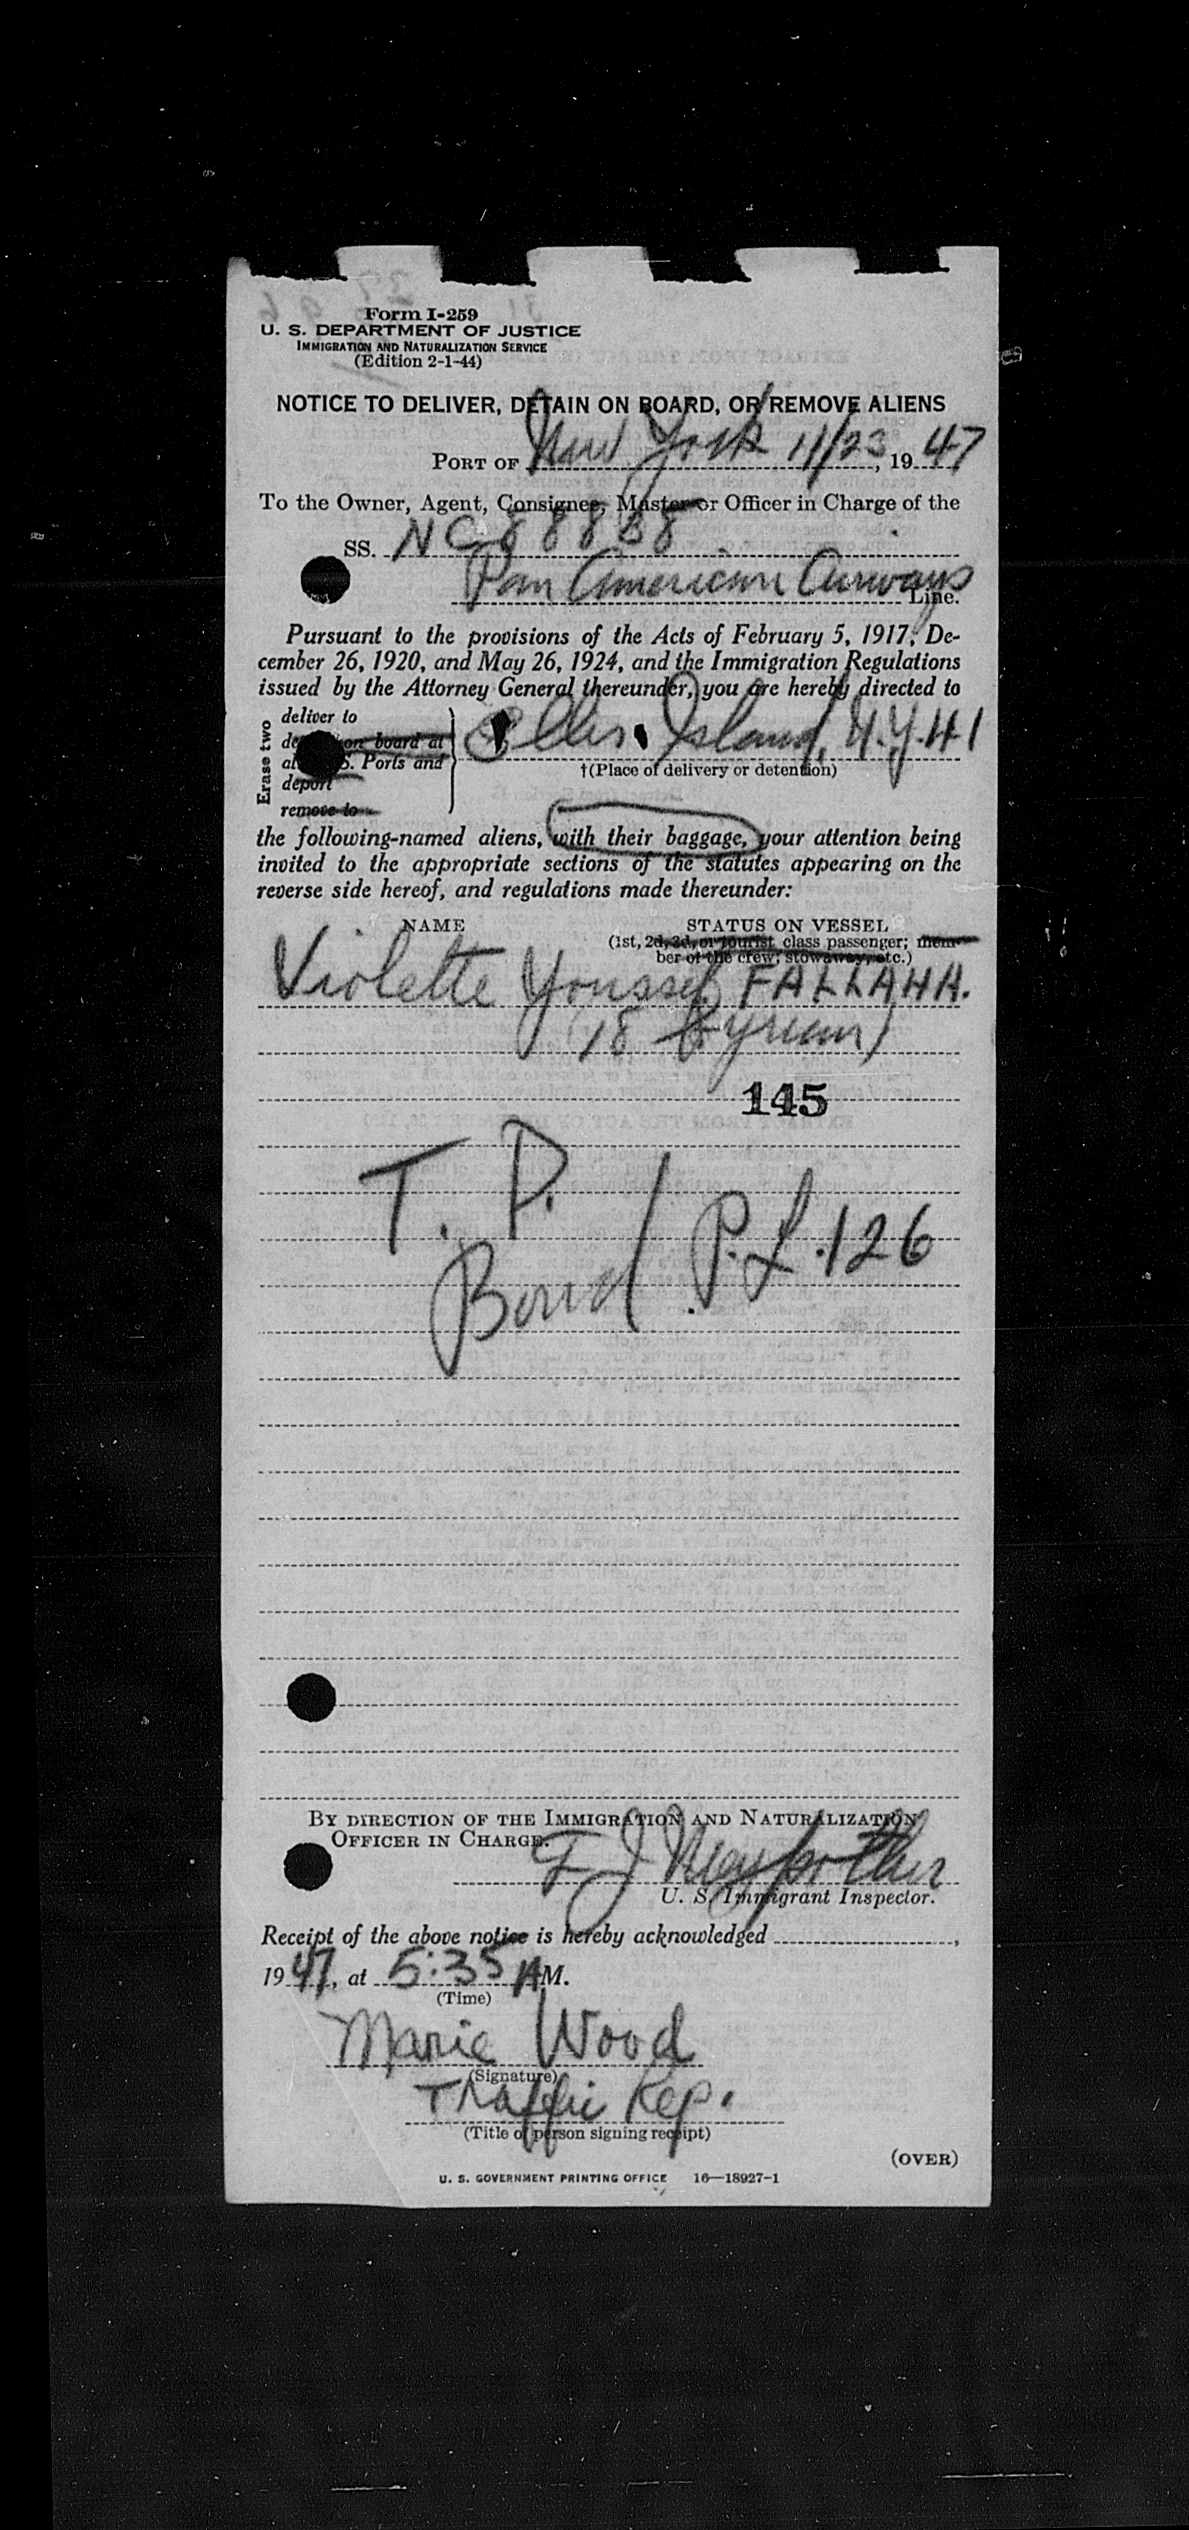 Form I-259
U. S. DEPARTMENT OF JUSTICE
IMMIGRATION AND NATURALIZATION SERVICE
(Edition 2-1-44)
NOTICE TO DELIVER, DETAIN ON BOARD, OR REMOVE ALIENS
PORT OF New York 11/23, 1947
To the Owner, Agent, Consignee, Master or Officer in Charge of the
SS. NC 88858
Pan American Airways Line.
Pursuant to the provisions of the Acts of February 5, 1917, De-
cember 26, 1920, and May 26, 1924, and the Immigration Regulations
issued by the Attorney General thereunder, you are hereby directed to
Erase two
deliver to
on board at
S. Ports and
deport
remove to
Ellis Island, N.Y. 41
†(Place of delivery or detention)
the following-named aliens, with their baggage, your attention being
invited to the appropriate sections of the statutes appearing on the
reverse side hereof, and regulations made thereunder:
NAME STATUS ON VESSEL
(1st, 2d, 3d, or tourist class passenger; mem-
ber of the crew; stowaway, etc.)
Violette Youssef FALLAHA.
(18 Syrian)
145
T. P.
Bond / P.L. 126
BY DIRECTION OF THE IMMIGRATION AND NATURALIZATION
OFFICER IN CHARGE.
F J
U. S. Immigrant Inspector.
Receipt of the above notice is hereby acknowledged ,
1947, at 5:35 AM.
(Time)
Marie Wood
(Signature)
Traffic Rep.
(Title of person signing receipt)
(OVER)
U. S. GOVERNMENT PRINTING OFFICE 16—18927-1